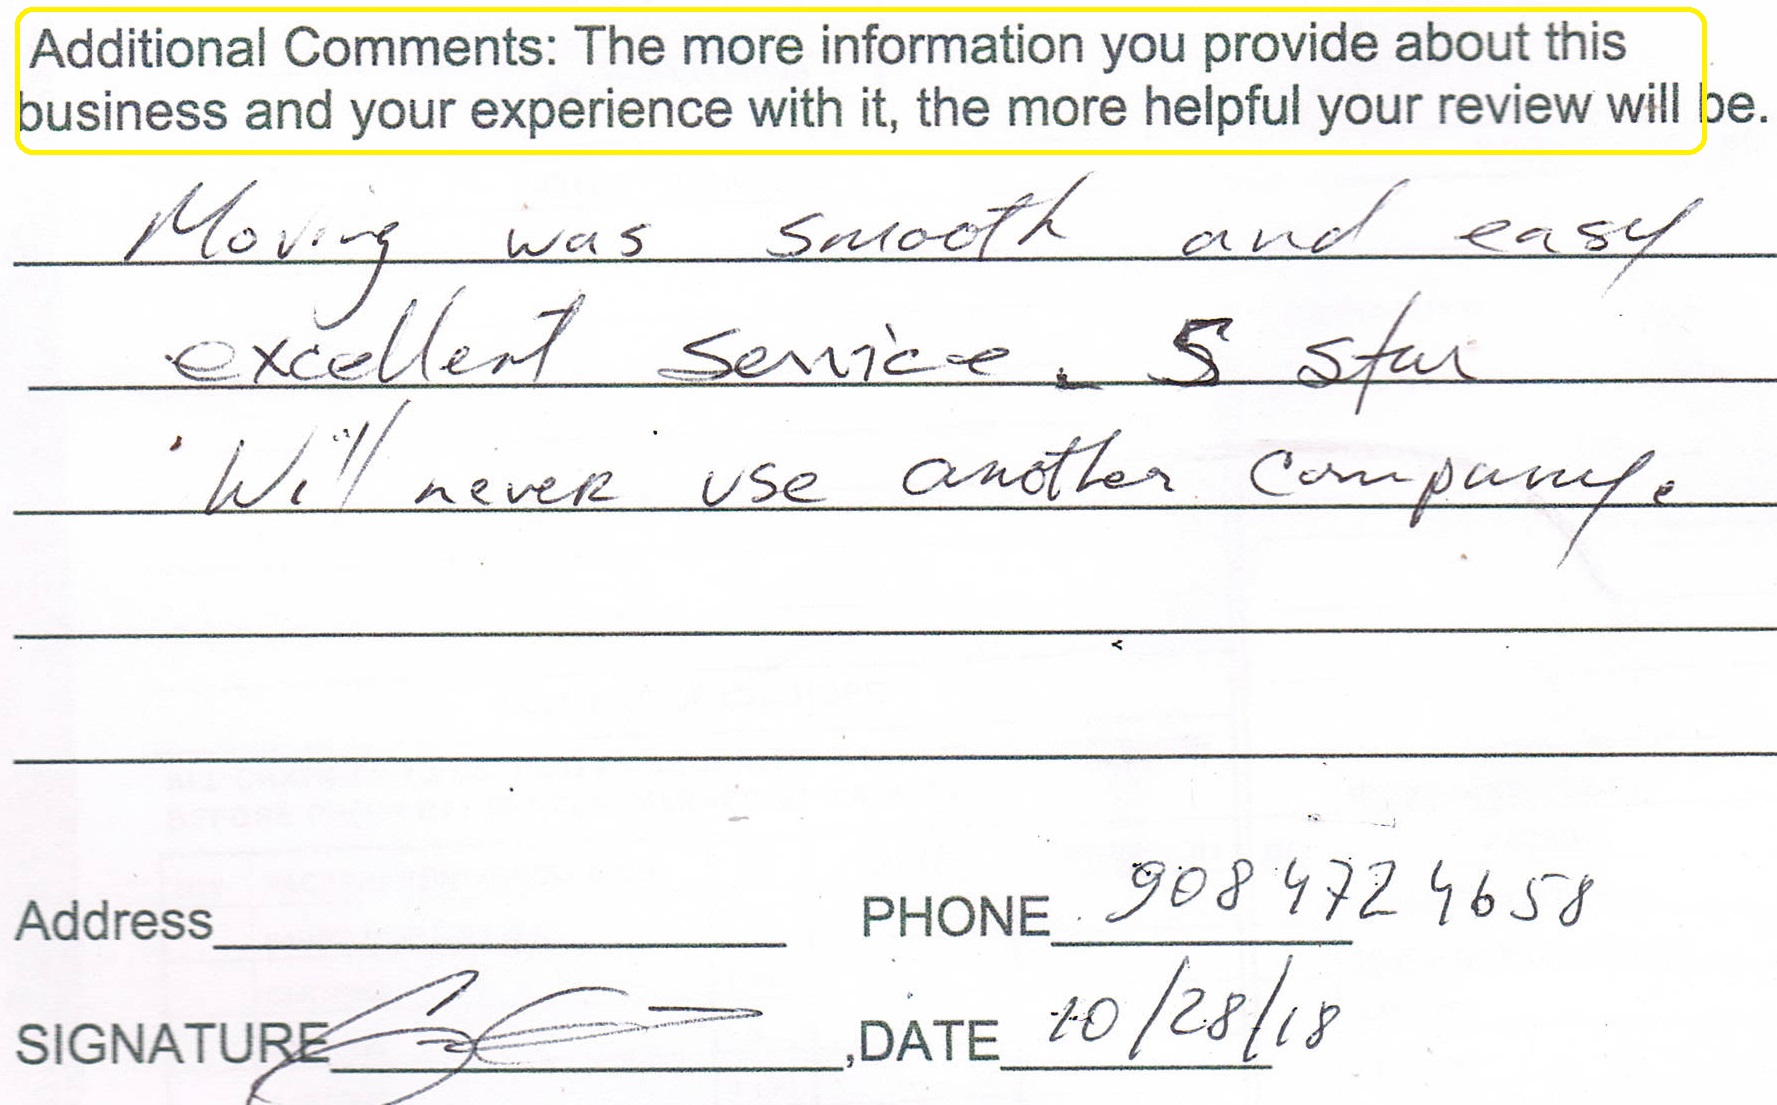 Additional Comments: The more information you provide about this
business and your experience with it, the more helpful your review will be.
Moving was smooth and easy
excellent service. 5 star
Will never use another company.
Address
PHONE 908 472 4658
SIGNATURE
,DATE 10/28/18